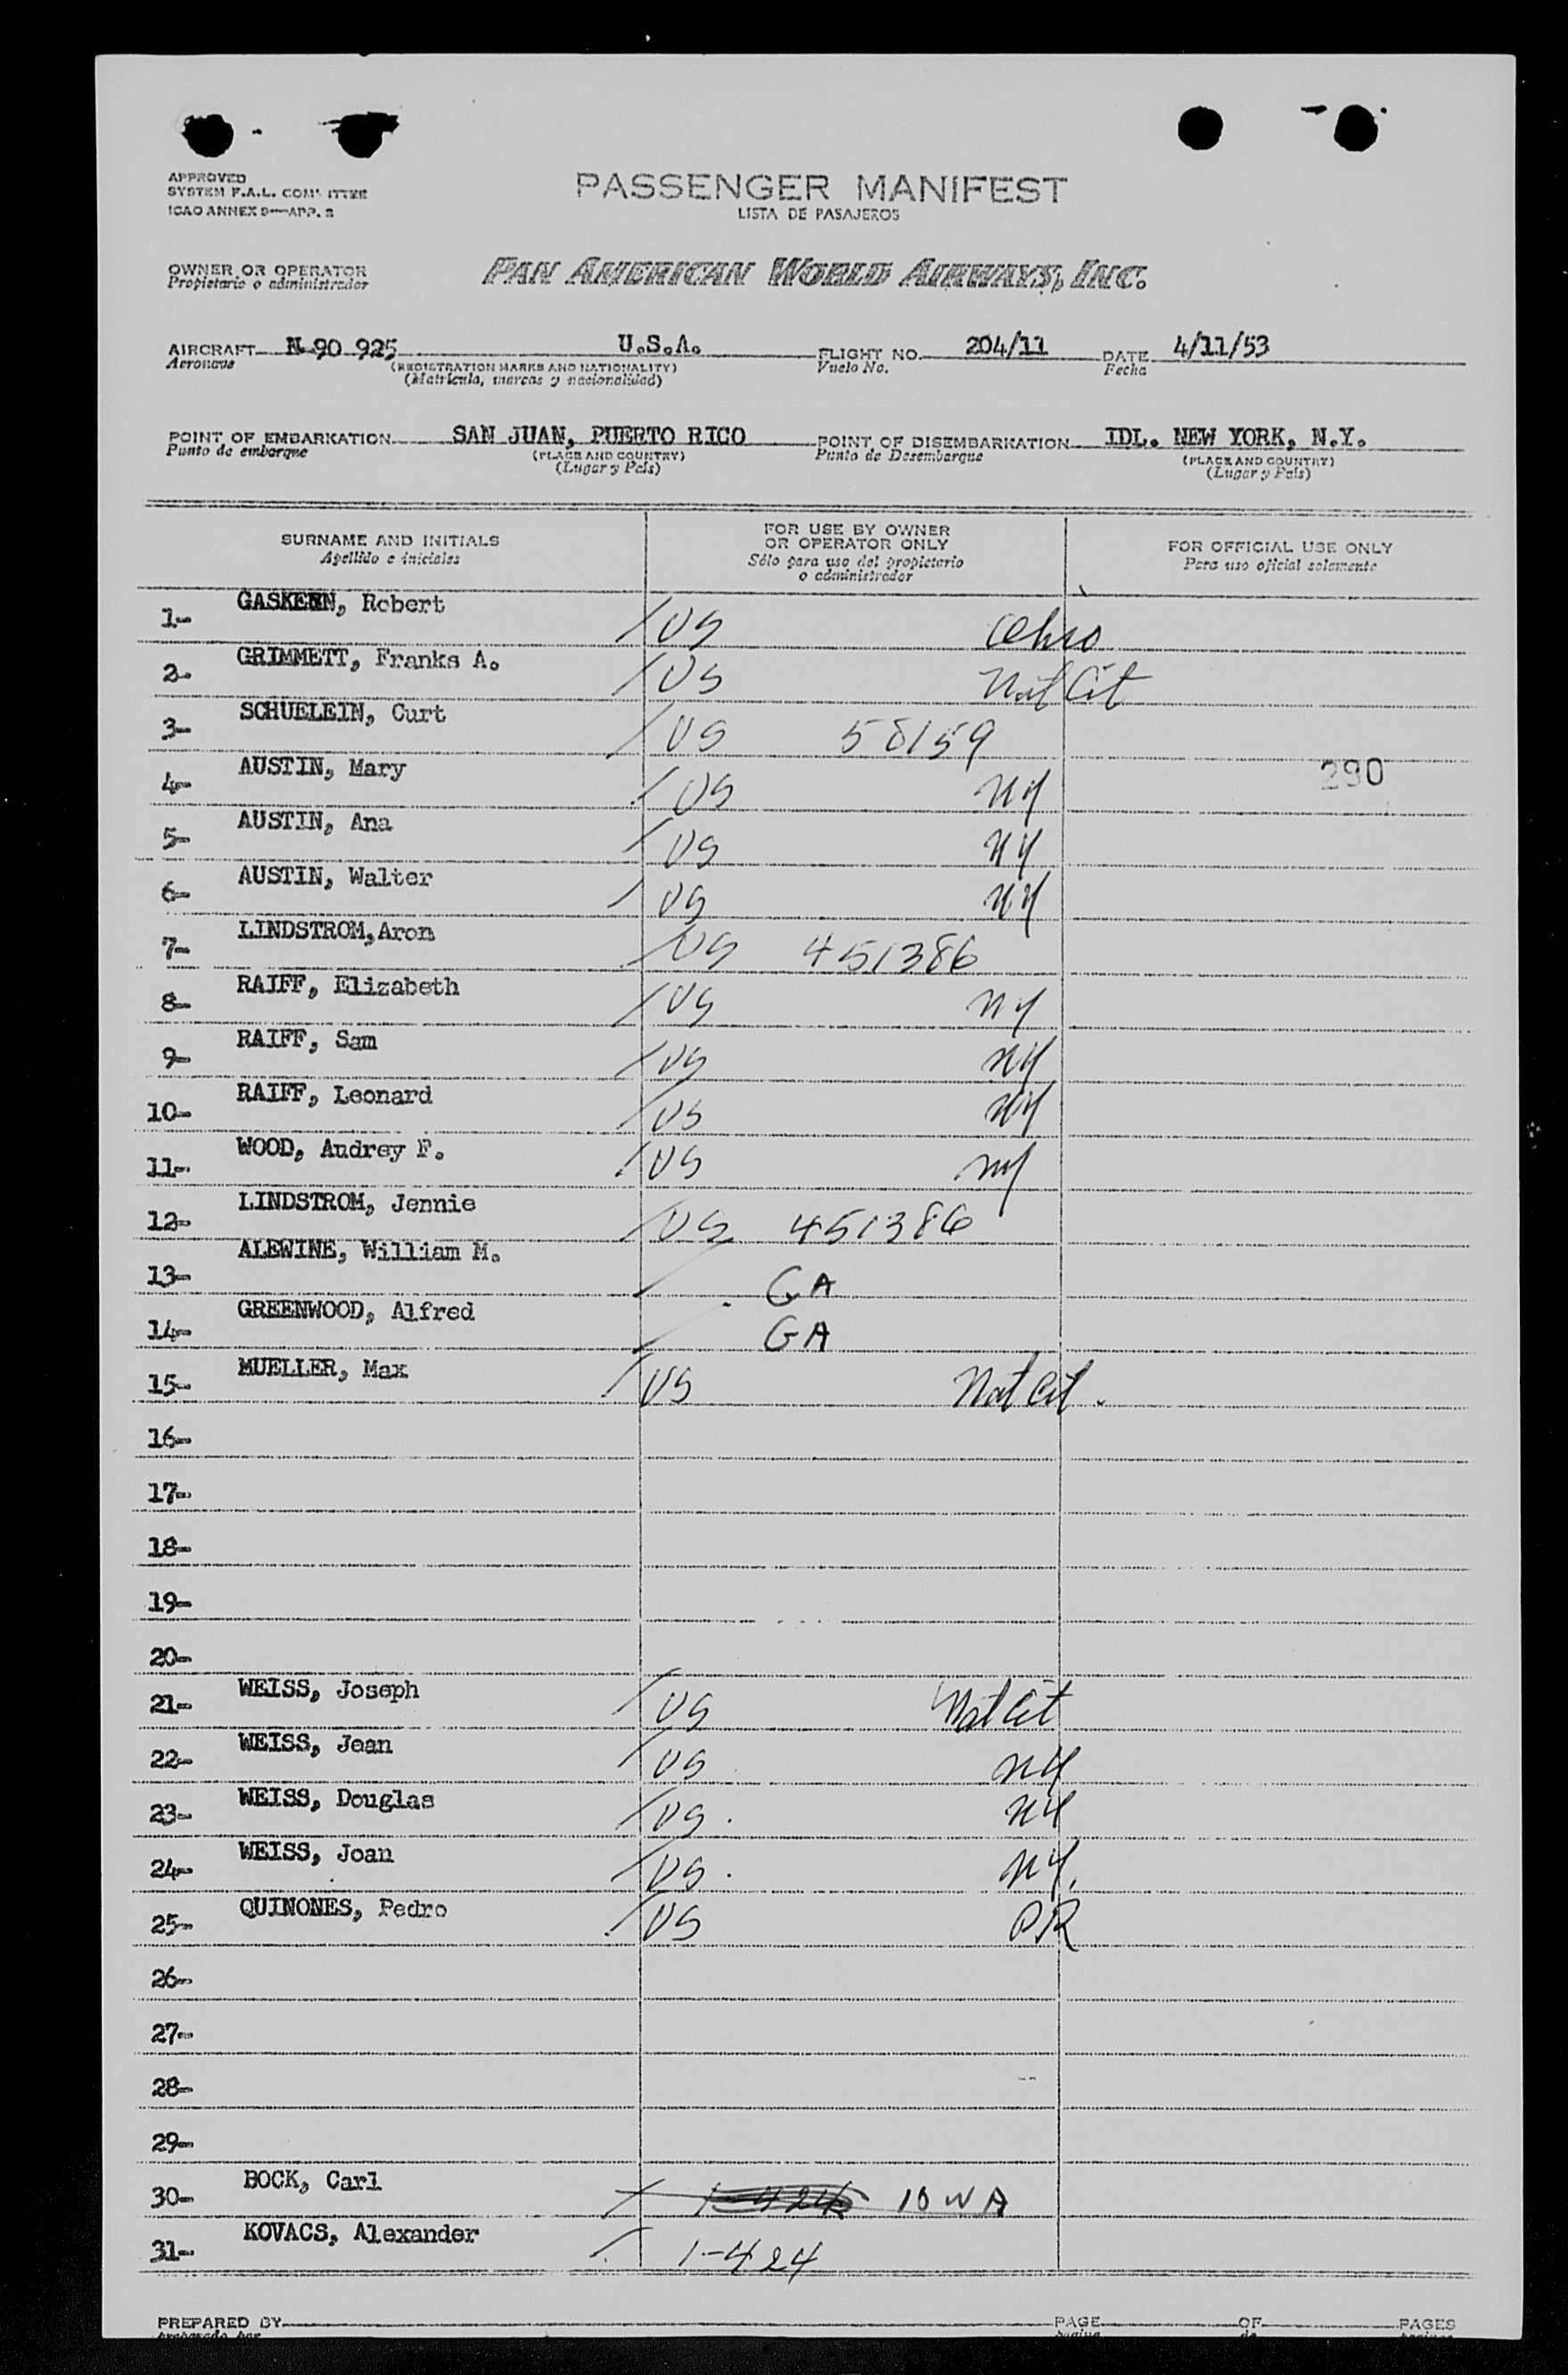 APPROVED
SYSTEM F.A.L. COM ITTEE
ICAO ANNEX 9—APP. 2
PASSENGER MANIFEST
LISTA DE PASAJEROS
OWNER OR OPERATOR
Propietario o administrador
PAN AMERICAN WORLD AIRWAYS, INC.
AIRCRAFT N-90 925 U.S.A. FLIGHT NO. 204/11 DATE 4/11/53
Aeronave (REGISTRATION MARKS AND NATIONALITY) Vuelo No. Fecha
(Matricula, marcas y nacionalidad)
POINT OF EMBARKATION SAN JUAN, PUERTO RICO POINT OF DISEMBARKATION IDL. NEW YORK, N.Y.
Punto de embarque (PLACE AND COUNTRY) Punto de Desembarque (PLACE AND COUNTRY)
(Lugar y País) (Lugar y País)
SURNAME AND INITIALS FOR USE BY OWNER OR OPERATOR ONLY FOR OFFICIAL USE ONLY
Apellido e iniciales Sólo para uso del propietario o administrador Para uso oficial solamente
1- GASKEEN, Robert / US Ohio
2- GRIMMETT, Franks A. / US Nat Cit
3- SCHUELEIN, Curt / US 58159
4- AUSTIN, Mary / US NY 290
5- AUSTIN, Ana / US NY
6- AUSTIN, Walter / US NY
7- LINDSTROM, Aron / US 451386
8- RAIFF, Elizabeth / US NY
9- RAIFF, Sam / US NY
10- RAIFF, Leonard / US NY
11- WOOD, Audrey F. / US NY
12- LINDSTROM, Jennie / US 451386
13- ALEWINE, William M. / GA
14- GREENWOOD, Alfred / GA
15- MUELLER, Max / US Nat Cit.
16-
17-
18-
19-
20-
21- WEISS, Joseph / US Nat Cit
22- WEISS, Jean / US NY
23- WEISS, Douglas / US. NY
24- WEISS, Joan / US. NY.
25- QUINONES, Pedro / US PR
26-
27-
28-
29-
30- BOCK, Carl / 1-424 IOWA
31- KOVACS, Alexander / 1-424
PREPARED BY PAGE OF PAGES